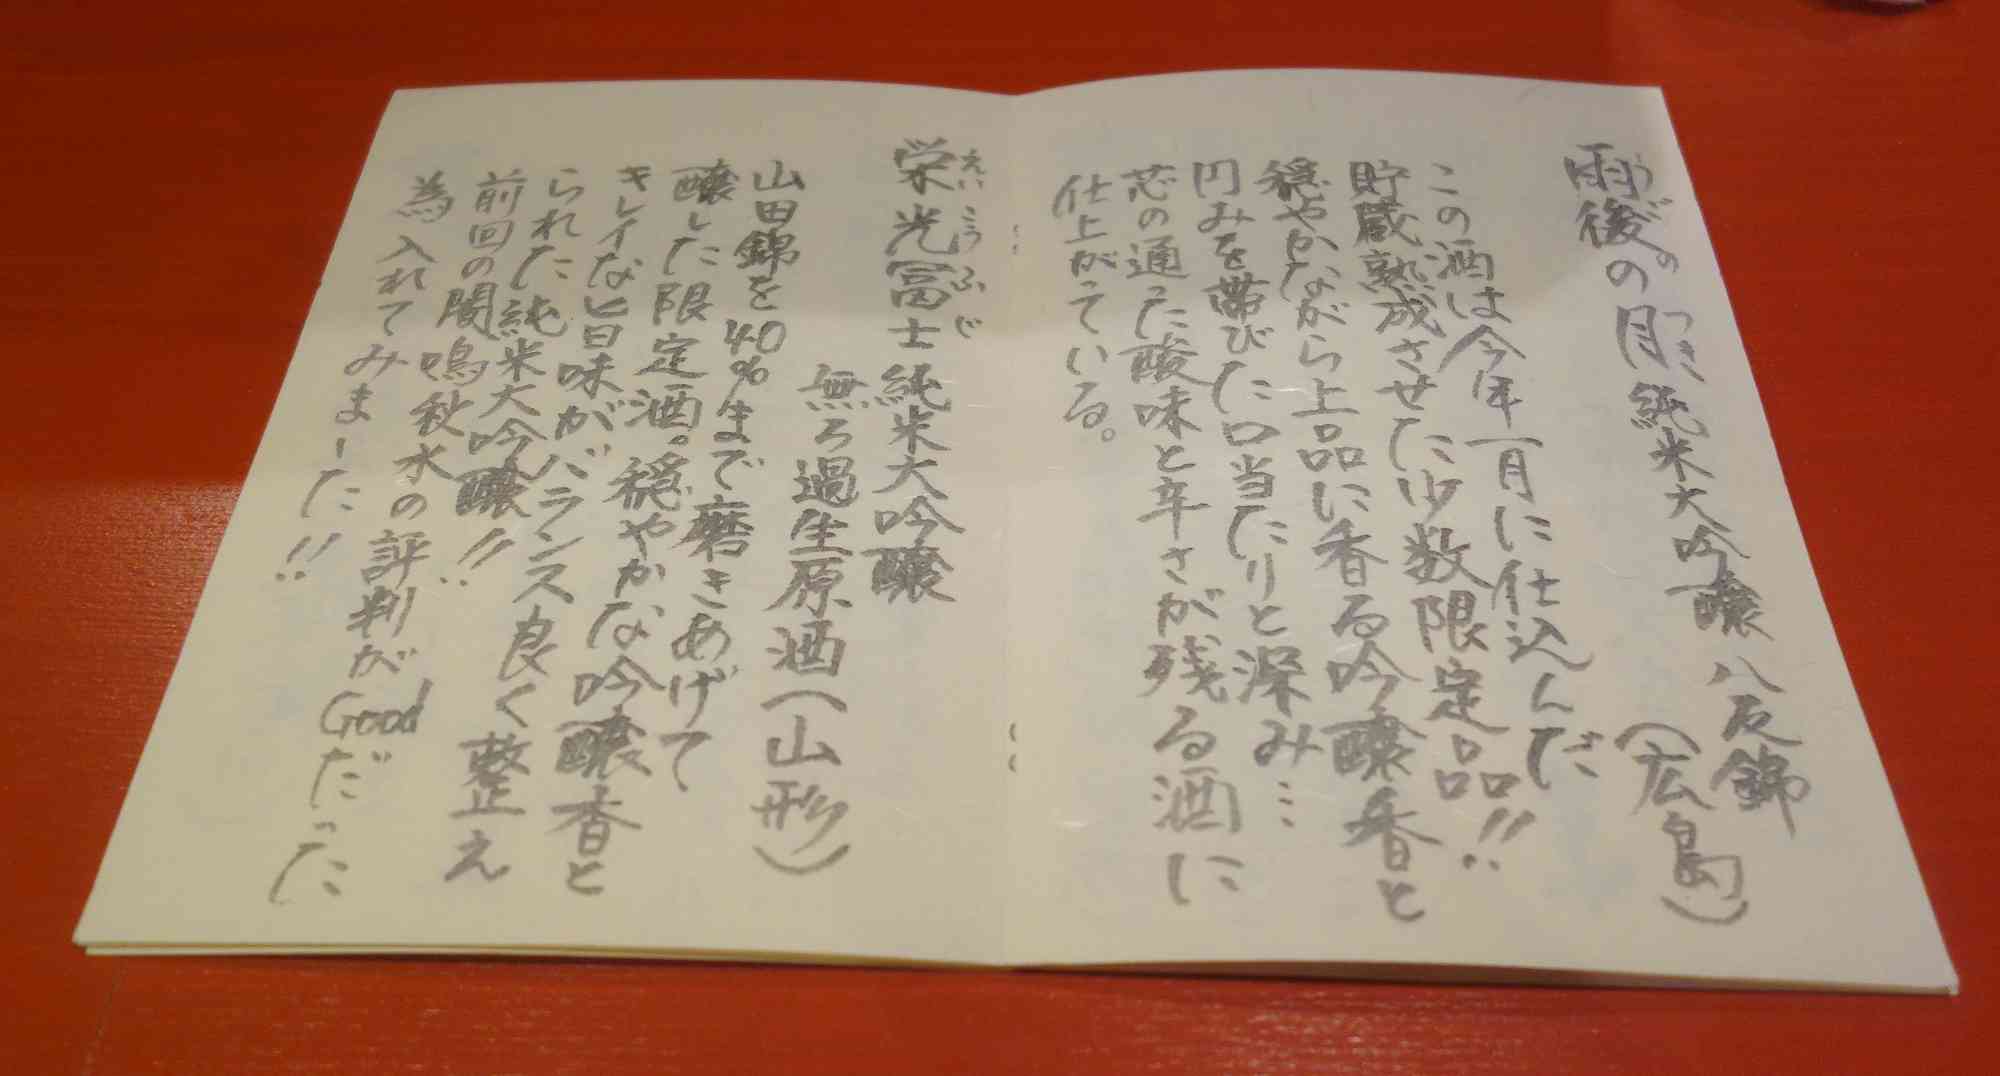 雨後の月 純米大吟醸 八反錦
うごのつき
（広島）
この酒は今年一月に仕込んだ
貯蔵熟成させた少数限定品!!
穏やかながら上品に香る吟醸香と
円みを帯びた口当たりと深み…
芯の通った酸味と辛さが残る酒に
仕上がっている。
栄光冨士 純米大吟醸
えいこうふじ
無ろ過生原酒（山形）
山田錦を40%まで磨きあげて
醸した限定酒。穏やかな吟醸香と
キレイな旨味がバランス良く整え
られた純米大吟醸!!
前回の闇鳴秋水の評判がGoodだった
為入れてみました!!